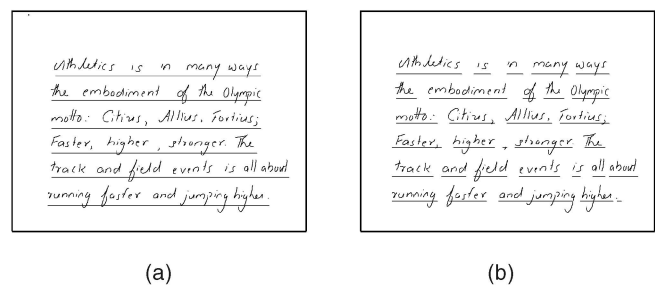 Athletics is in many ways
the embodiment of the Olympic
motto: Citius, Altius, Fortius;
Faster, higher, stronger. The
track and field events is all about
running faster and jumping higher.
(a)
Athletics is in many ways
the embodiment of the Olympic
motto: Citius, Altius, Fortius;
Faster, higher, stronger. The
track and field events is all about
running faster and jumping higher.
(b)